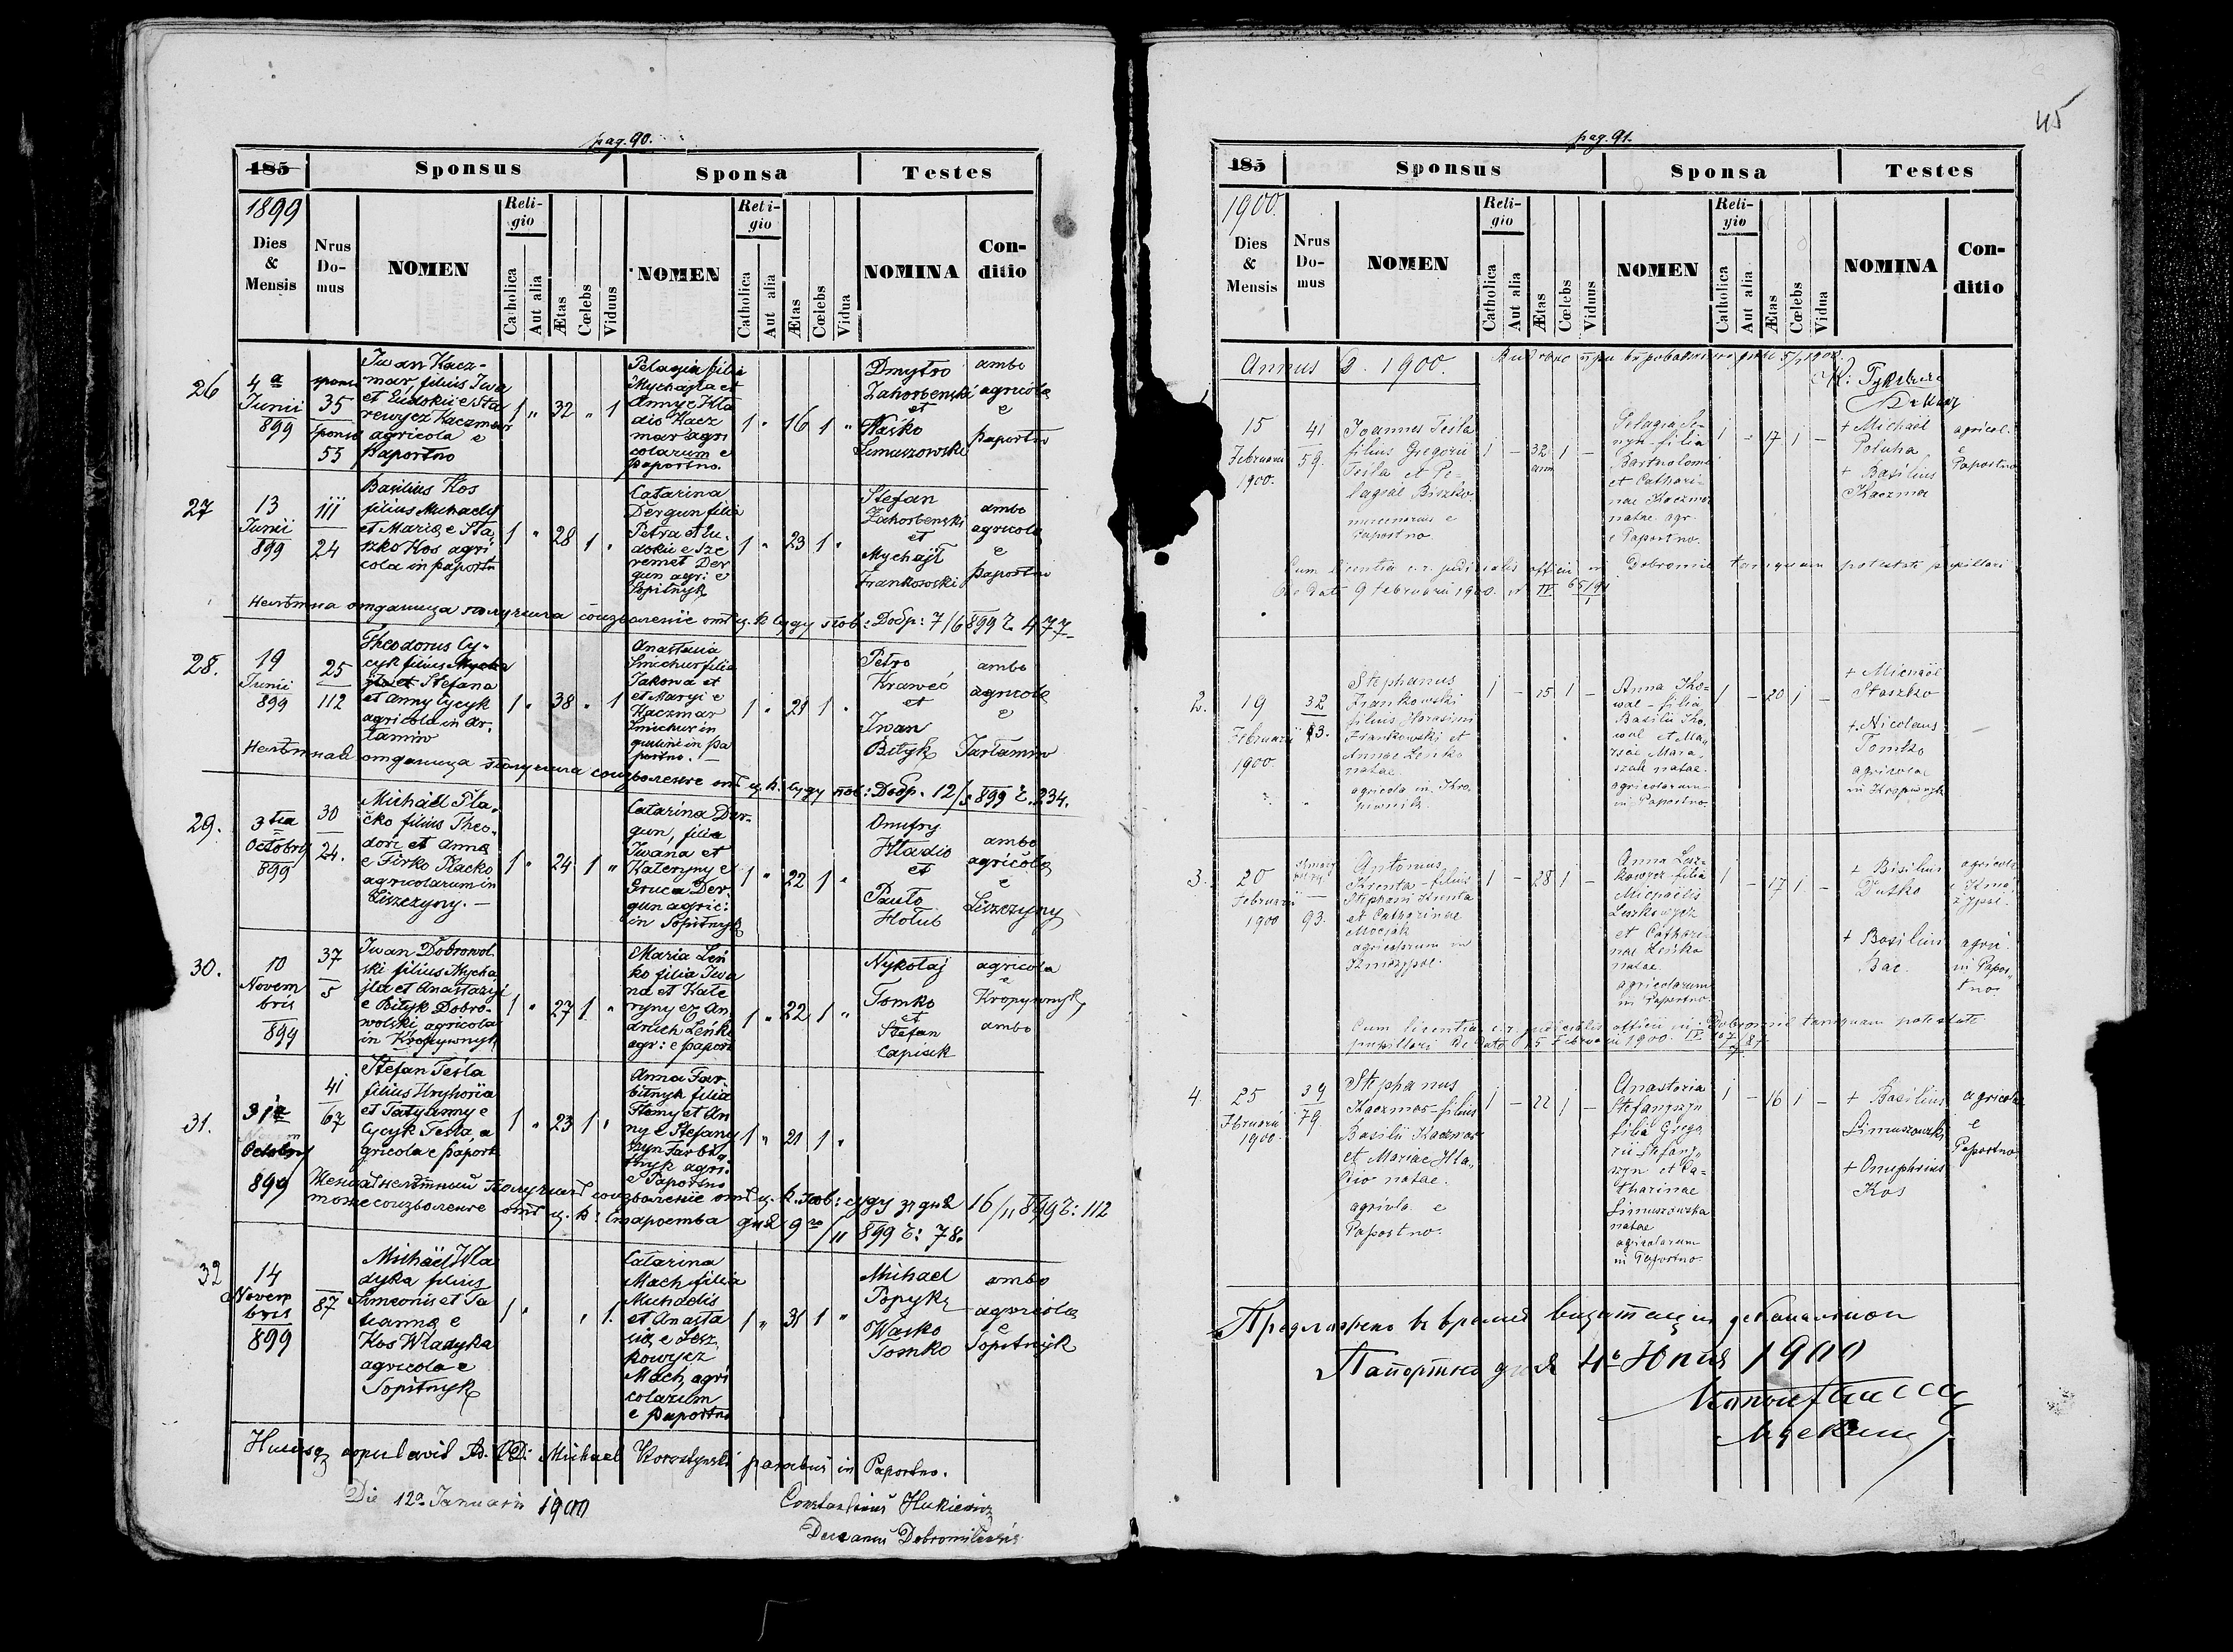 pag. 90.
185
Sponsus
Sponsa
Testes
1899
Dies
&
Mensis
Nrus
Do-
mus
NOMEN
Reli-
gio
Catholica
Aut alia
Ætas
Cœlebs
Viduus
NOMEN
Reli-
gio
Catholica
Aut alia
Ætas
Cœlebs
Vidua
NOMINA
Con-
ditio
26
4a
Junii
899
sponsi
35
sponsa
55
Iwan Kacz-
mar, filius Iwa
et Eudokii e Sta
rewycz Kaczmar
agricola e
Paportno
1 " 32 " 1
Pelagia filia
Mychajła et
Anny e Hła
dio Kacz
mar agri
colarum e
Paportno.
1 " 16 1 "
Dmytro
Zahorbenski
et
Wasko
Limuszowski
ambo
agricolæ
e
Paportno
27
13
Junii
899
111
24
Basilius Kos
filius Michaelis
et Mariæ e Sta
szko Kos agri
cola in Paportn
1 " 28 1 "
Catarina
Dergun filia
Petra et Eu-
dokii e Sze
remet Der
gun agri: e
Sopitnyk
1 " 23 1 "
Stefan
Zahorbenski
et
Mychajł
Frankowski
ambo
agricolæ
e
Paportno
Нелѣтна отданица получила соизволеніе отъ ц. к. суду пов: Добр: 7/6 899 Ч. 477
28.
19
Junii
899
25
112
Theodorus Cy-
cyk filius Mycha
jła et Stefana
et Anny Cycyk
agricola in Ar-
łamiw
1 " 38 " 1
Anastasia
Smichur filia
Jakowa et
et Maryi e
Kaczmar
Smichur in
quilini in Pa
portno.
1 " 21 1 "
Petro
Kraweć
et
Iwan
Biłyk
ambo
agricolæ
e
Jarłamiw
отданица получила соизволеніе отъ ц. к. суду пов: Добр. 12/5 899 Ч. 234.
29.
3tia
Octobris
899
30
24.
Michael Pla-
cko filius Theo-
dori et Annæ
e Firko Placko
agricolarum in
Liszczyny.
1 " 24 1 "
Catarina Der-
gun, filia
Iwana et
Kateryny e
Gruca Der-
gun agric:
in Sopitnyk
1 " 22 1 "
Onufry
Hładio
et
Pauło
Hołub
ambo
agricolæ
e
Liszczyny
30.
10
Novem
bris
899
37
5
Iwan Dobrowol
ski filius Mycha
jła et Anastazyi
e Biłyk Dobro-
wolski agricola
in Kropywnyk
1 " 27 1 "
Maria Leń
ko filia Iwa
na et Kate
ryny ez An
druch Leńko
agr: e Paport
1 " 22 1 "
Nykołaj
Tomko
et
Stefan
Capiuk
agricola
e
Kropywnyk
ambo
31.
31a
Octobris
899
41
67
Stefan Tesla
filius Hryhoria
et Tatyanny e
Cycyk Tesla, a
gricola e Paport
1 " 23 1 "
Anna Far-
bitnyk filia
Tomy et An
ny e Stefany
szyn Farbi
tnyk agri:
e Paportno
1 " 21 1 "
получилъ соизволеніе отъ ц. к. пов: суду зъ дня 16/11 899 Ч: 112
тоже соизволеніе отъ ц. к: Староства дня 9го/11 899 Ч: 78.
32
14
Novem
bris
899
87
Michael Wła
dyka filius
Simeonis et Ta
tiannæ e
Kos Władyka
agricola e
Sopitnyk
1 " " 1.
Catarina
Mach filia
Michaelis
et Anasta
siæ e Lesz
kowycz
Mach, agri
colarum
e Paportno
1 " 31 1 "
Michael
Popyk
Wasko
Tomko
ambo
agricolæ
e
Sopitnyk
Hucusq copulavit Michael Korostynski parochus in Paportno.
Die 12a Januarii 1900
Constantinus Hukiewicz
Decanus Dobromilensis
45
pag. 91.
185
Sponsus
Sponsa
Testes
1900.
Dies
&
Mensis
Nrus
Do-
mus
NOMEN
Reli-
gio
Catholica
Aut alia
Ætas
Cœlebs
Viduus
NOMEN
Reli-
gio
Catholica
Aut alia
Ætas
Cœlebs
Vidua
NOMINA
Con-
ditio
Annus D. 1900.
15
Februarii
1900.
41
59.
Joannes Tesla
filius Gregorii
Tesla et Pe-
lagiae Biszko
mercenarius e
Paportno.
1 - 32 1 -
ann
filia
Bartholomei
et Cathari-
nae Kaczmar
natae agr.
e Paportno.
1 - 17 1 -
+ Michael
Poluha
+ Basilius
Kaczmar
agricol.
e
Paportno
Cum licentia c. r. judicialis officii in Dobromil tamquam potestate pupillari
De Dato 9 februarii 1900. N IV 65/99
2.
19
Februarii
1900.
32
13.
Stephanus
Frankowski
filius Harasimi
Frankowski et
Annae Leńko
natae.
agricola in Kro-
piwnik.
1 - 25 1 -
Anna Kho-
wal - filia
Basilii Kho-
wal et Ma-
riae Mara-
szak natae.
agricolarum
in Paportno.
1 - 20 1 -
+ Michael
Staszko
+ Nicolaus
Tomko
agricolae
in Kropiwnyk
3.
20
Februarii
1900
93.
Antonius
Krenta - filius
Stephani Krenta
et Catharinae
Mocjak
agricolarum in
1 - 28 1 -
Anna Lesz-
kowycz - filia
Michaelis
Leszkowycz
et Cathari-
nae Leńko
natae
agricolarum
in Paportno.
1 - 17 1 -
+ Basilius
Dutko
+ Basilius
Bac.
agricola
agric.
in Papor-
tno.
Cum licentia c. r. judicialis officii in Dobromil tamquam potestate
pupillari De Dato 15 Februarii 1900.
4.
25
Februarii
1900.
39
79.
Stephanus
Kaczmar - filius
Basilii Kaczmar
et Mariae Hła-
dio natae.
agricola e
Paportno.
1 - 22 1 -
Anastasia
Stefanyszyn
filia Grego
rii Stefany-
szyn et Ca-
tharinae
Limuszowska
natae
agricolarum
in Paportno.
1 - 16 1 -
+ Basilius
Limuszowski
+ Onuphrius
Kos
agricolae
e
Paportno
Предложено въ время визитаціи деканальной
Папортно дня 4. Юнія 1900